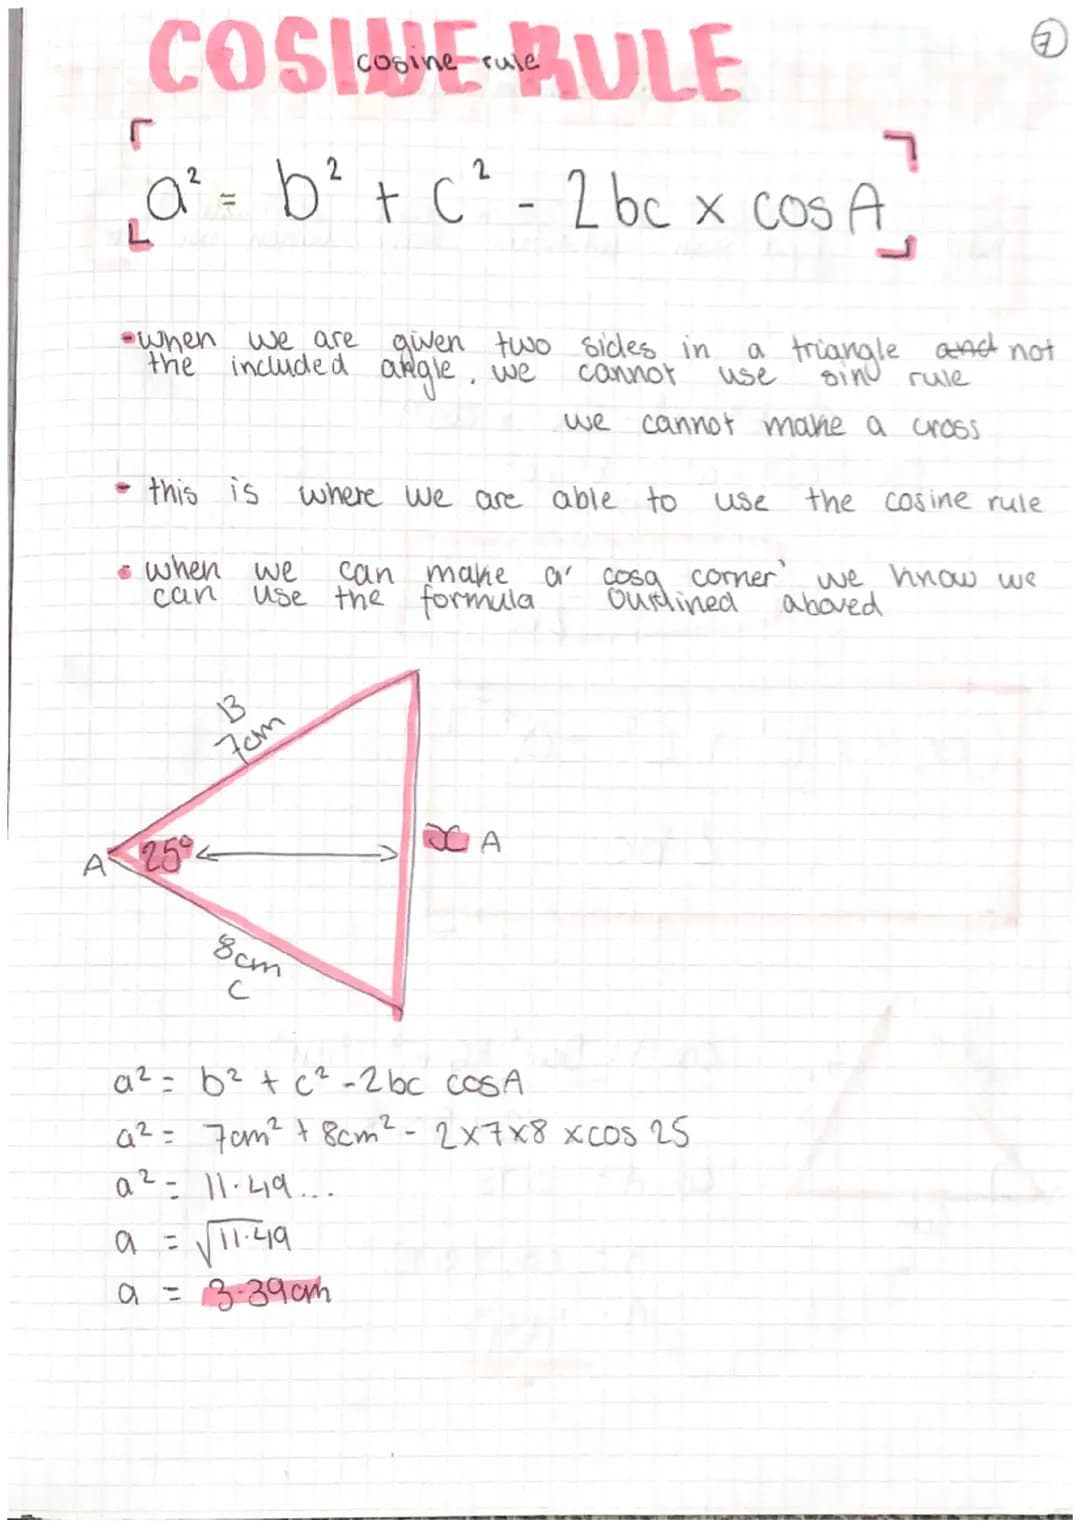 COSINE RULE
cosine rule
7
a² = b² + c² - 2bc x cos A
- when we are given two sides in a triangle and not
the included angle, we cannot use sin rule
we cannot make a cross
- this is where we are able to use the cosine rule
• when we can make a 'cosa corner' we know we
can use the formula outlined aboved
B
7cm
A 25°
x A
8cm
C
a² = b² + c² - 2bc cosA
a² = 7cm² + 8cm² - 2x7x8 xcos 25
a² = 11.49...
a = √11.49
a = 3.39cm